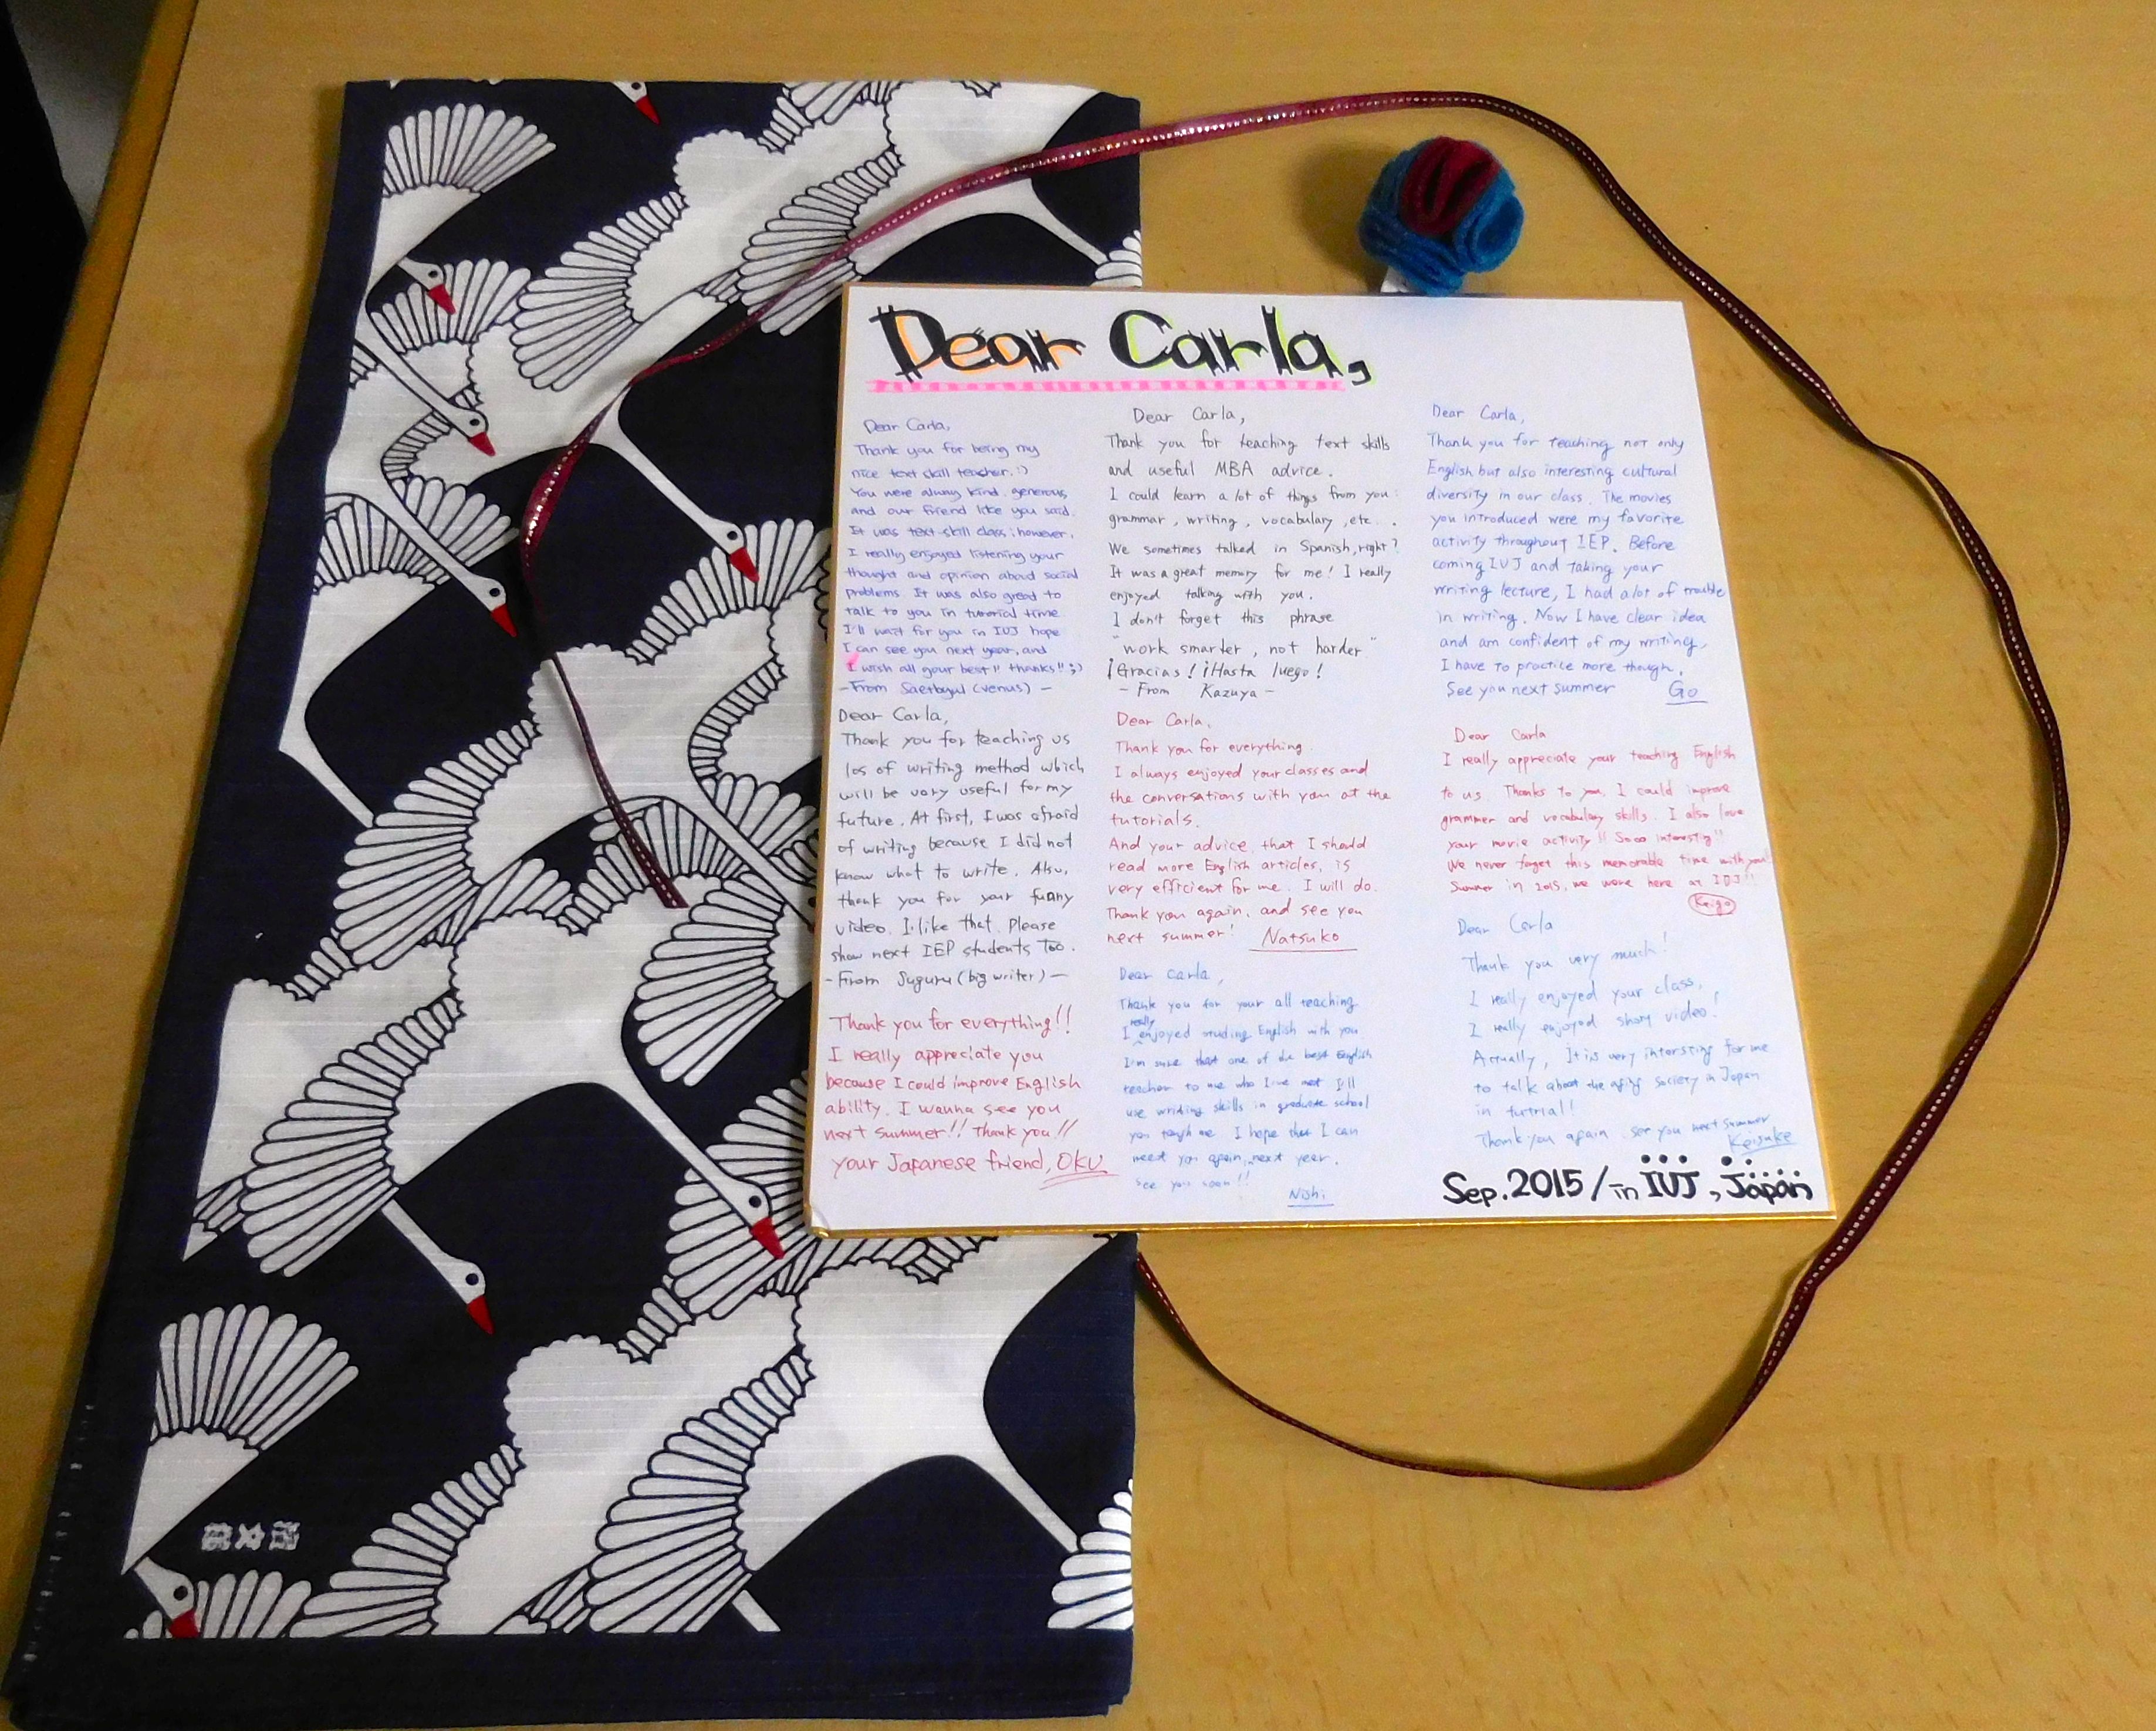 Dear Carla,
Dear Carla,
Thank you for being my
nice text skill teacher. :)
You were alway kind, generous,
and our friend like you said.
It was text skill class, however,
I really enjoyed listening your
thought and opinion aboud social
problems. It was also great to
talk to you in tutorial time.
I'll wait for you in IUJ hope
I can see you next year, and
I wish all your best!! thanks!! ;)
-From Saetbyul (venus) -
Dear Carla,
Thank you for teaching us
los of writing method which
will be vary useful for my
future. At first, I was afraid
of writing because I did not
know what to write. Also,
thank you for your funny
video. I like that. Please
show next IEP students too.
- From Suguru (big writer) -
Thank you for everything!!
I really appreciate you
because I could improve English
ability. I wanna see you
next summer!! Thank you!!
your Japanese friend, OKU
Dear Carla,
Thank you for teaching text skills
and useful MBA advice.
I could learn a lot of things from you:
grammar, writing, vocabulary, etc...
We sometimes talked in Spanish, right?
It was a great memory for me! I really
enjoyed talking with you.
I don't forget this phrase
"work smarter, not harder"
¡Gracias! ¡Hasta luego!
- From Kazuya -
Dear Carla,
Thank you for everything.
I always enjoyed your classes and
the conversations with you at the
tutorials.
And your advice, that I should
read more English articles, is
very efficient for me. I will do.
Thank you again, and see you
next summer! Natsuko
Dear Carla,
Thank you for your all teaching
I really enjoyed studing English with you
I'm sure that one of the best English
teacher to me who I've met I'll
use writing skills in graduate school
you me I hope that I can
meet you again, next year.
See you soon!!
Nishi
Dear Carla,
Thank you for teaching not only
English but also interesting cultural
diversity in our class. The movies
you introduced were my favorite
activity throughout IEP. Before
coming IUJ and taking your
writing lecture, I had a lot of trouble
in writing. Now I have clear idea
and am confident of my writing,
I have to practice more though.
See you next summer Go
Dear Carla
I really appreciate your teaching English
to us. Thanks to you, I could improve
grammer and vocabulary skills. I also love
your movie activity!! Sooo interesting!!
We never foget this memorable time with you!
Summer in 2015, we were here at IUJ!!
Keigo
Dear Carla
Thank you very much!
I really enjoyed your class,
I really enjoyed short video!
Actually, It is very intersting for me
to talk about the aging society in Japan
in tutrial!
Thank you again. see you next summer
Keisuke
Sep. 2015 / in IUJ, Japan